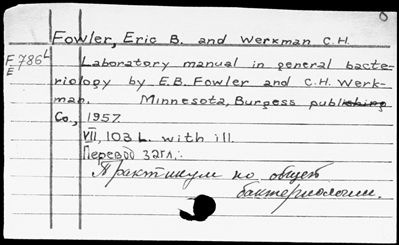 Fowler, Eric B. and Werkman C.H.
F 786L
E
Laboratory manual in general bacte-
riology by E.B. Fowler and C.H. Werk-
man. Minnesota, Burgess publishing
Co., 1957.
VII, 103 L. with ill.
Перевод загл.:
Практикум по общей
бактериологии.